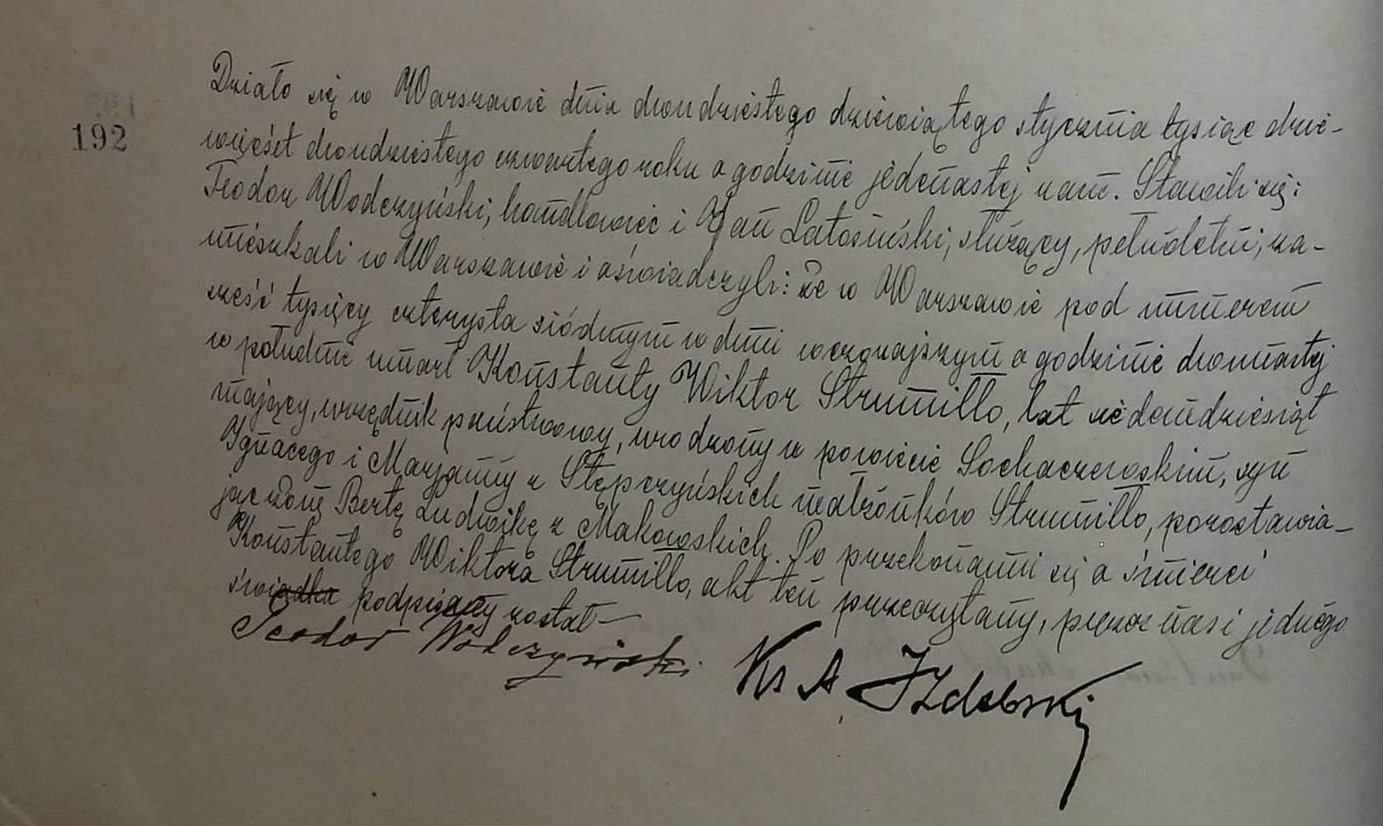 192
Działo się w Warszawie dnia dwudziestego dziewiątego stycznia tysiąc dzie-
więćset dwudziestego czwartego roku o godzinie jedenastej rano. Stawili się:
Teodor Wodczyński, handlowiec i Jan Latosiński, służący, pełnoletni, za-
mieszkali w Warszawie i oświadczyli: że w Warszawie pod numerem
sześć tysięcy czterysta siódmym w dniu wczorajszym o godzinie dwunastej
w południe umarł Konstanty Wiktor Strumiłło, lat siedemdziesiąt
mający, urzędnik państwowy, urodzony w powiecie Sochaczewskim, syn
Ignacego i Marjanny z Stępczyńskich małżonków Strumiłło, pozostawia-
jąc żonę Bertę Ludwikę z Makowskich. Po przekonaniu się o śmierci
Konstantego Wiktora Strumiłło, akt ten przeczytany, przez nas i jednego
świadka podpisany został
Teodor Wodczyński Ks A Izdebski